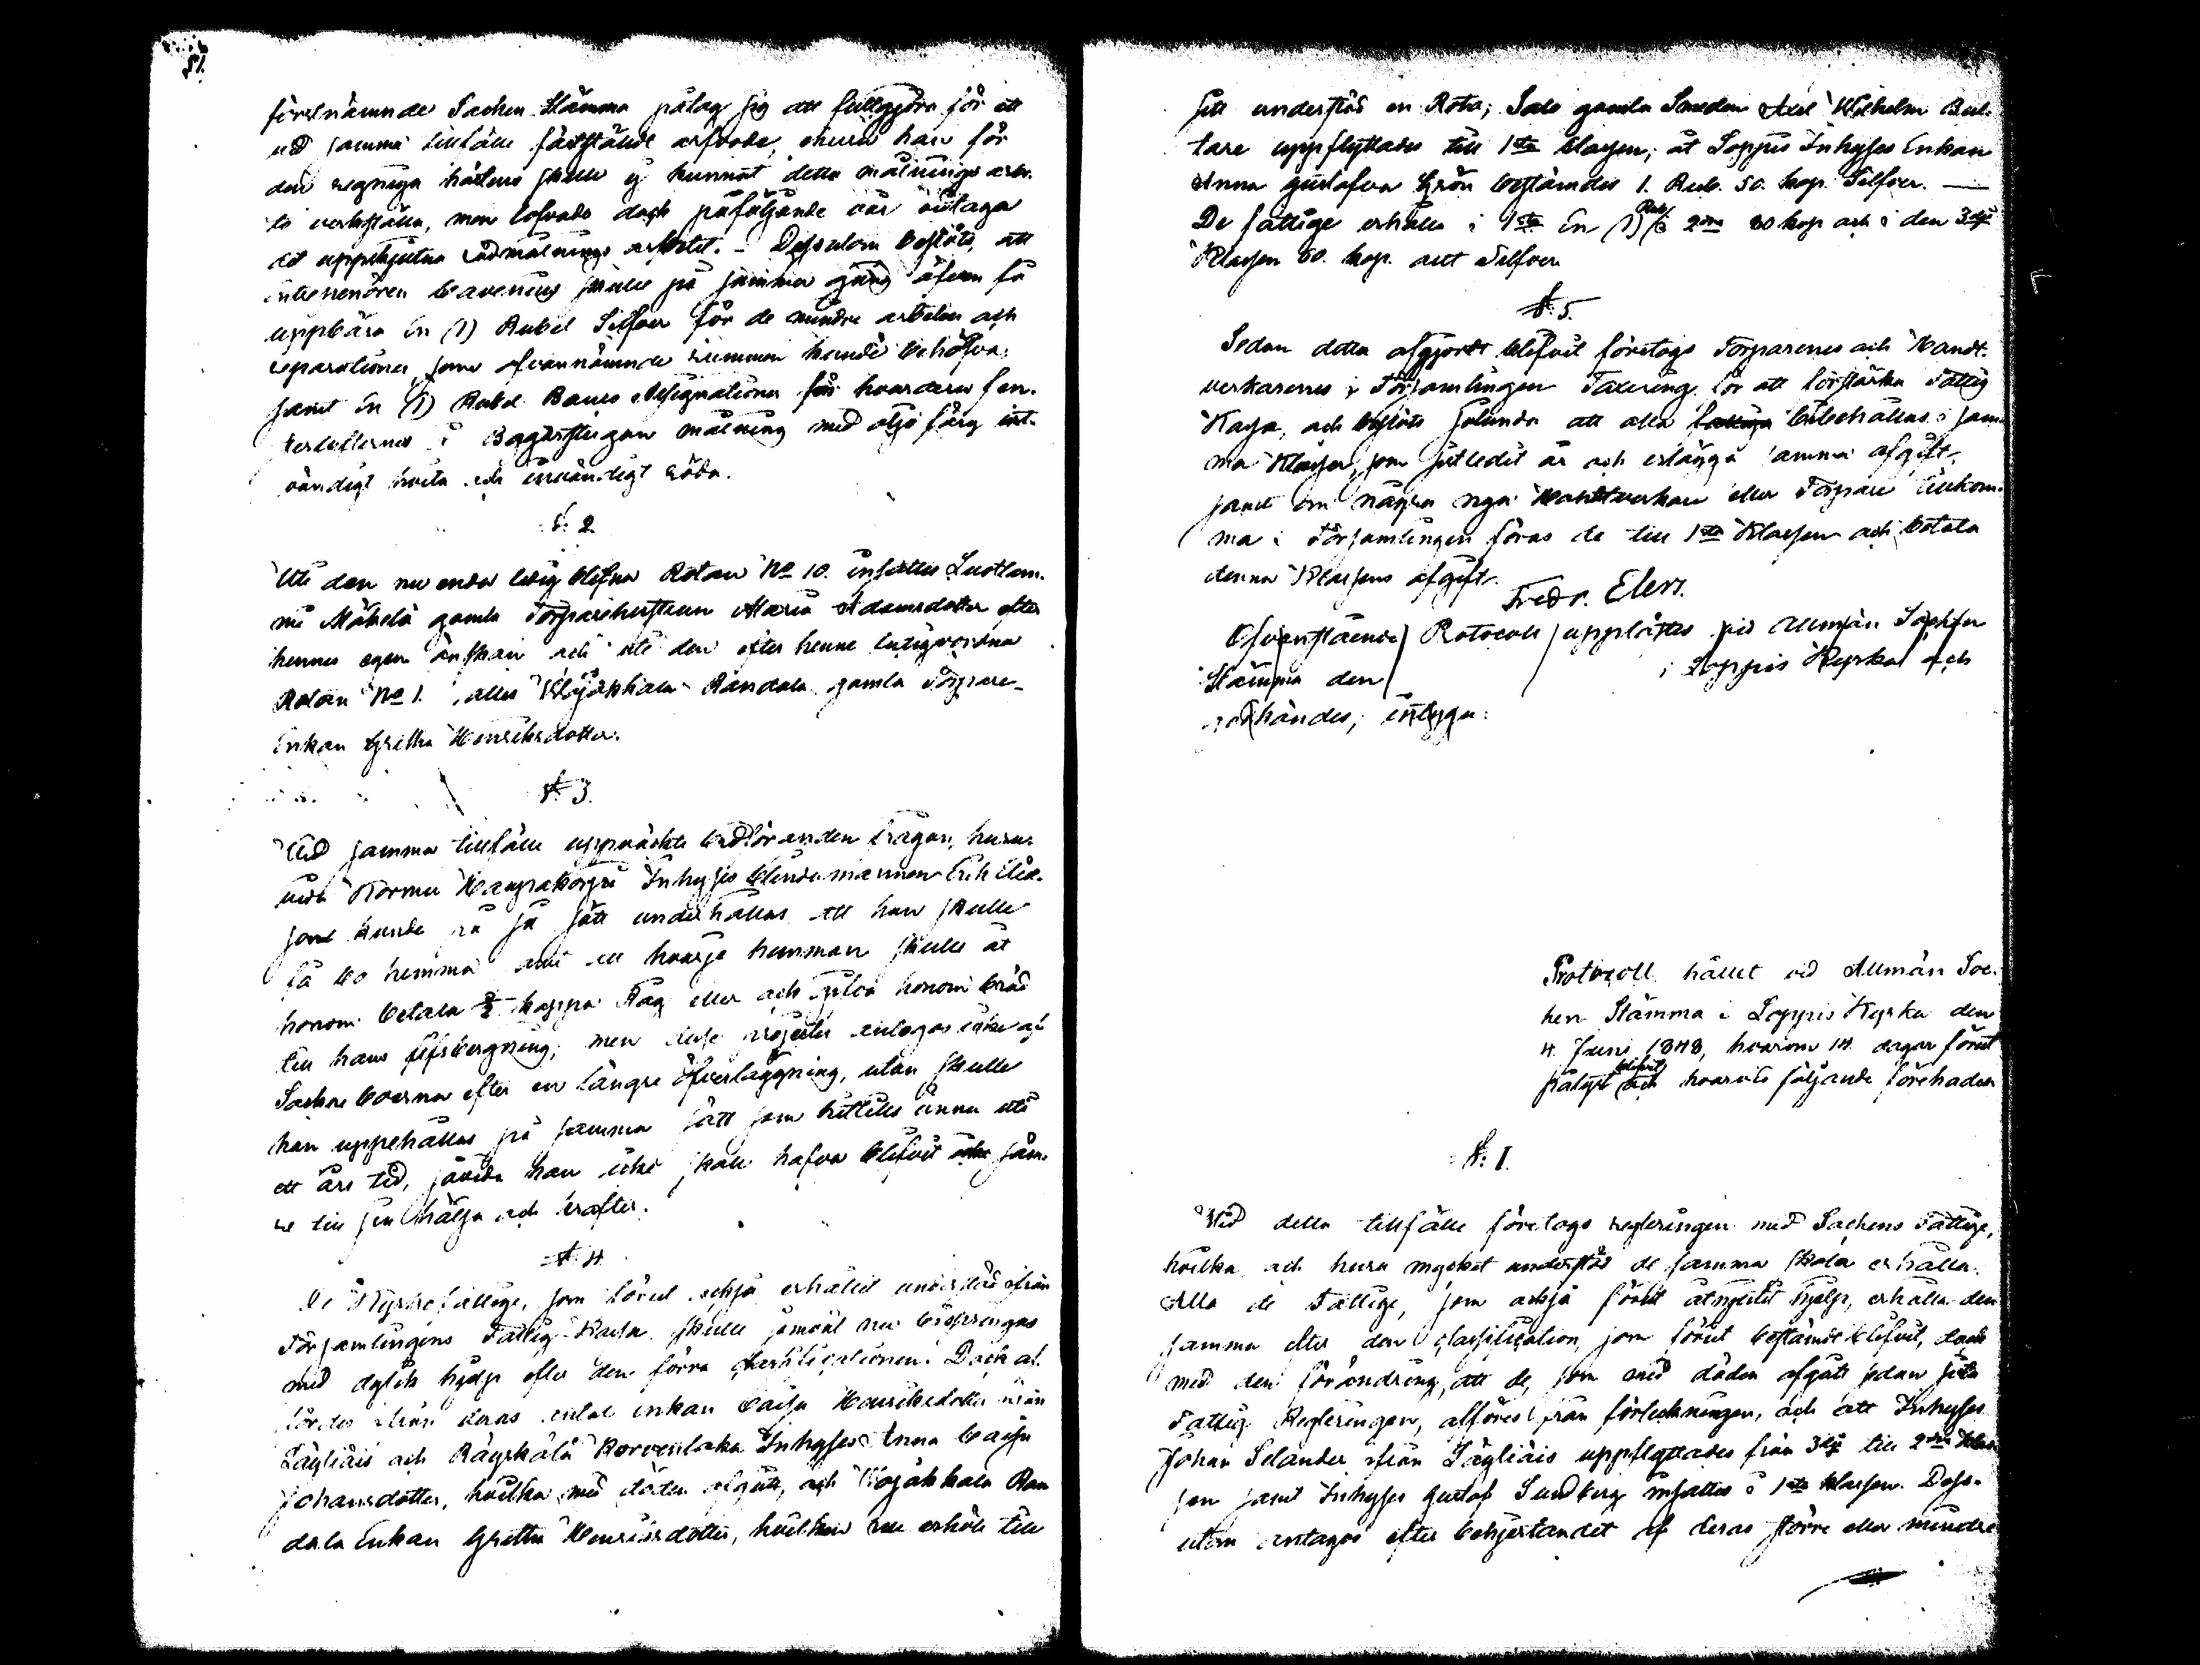 51.
förstnämnde Sochen Stämma påtog sig att fullgjöra för ett
vid samma tillfälle fastställdt arfvode, ehuru han för
den regniga höstens skull ej kunnat detta målnings arbe-
te verkställa, men lofvade dock påföljande vår vidtaga
det uppskjutna rödmålnings arbetet. – Dessutom beslöts, att
Entreprenören Cavenius skulle på samma gång äfven få
uppbära En (1) Rubel Silfver för de mindre arbeten och
reparationer, som ofvannämnde rummen kunde behöfva;
samt En (1) Rubel Banco Assignationer för hvardera fen-
sterlufternes i Bagarstugan målning med oljo färg ut-
vändigt hvita och invändigt röda.
§. 2.
Uti den nu endast ledig blefna Rotan No 10. insattes Luotlam-
mi Mäkelä gamla Torparehustrun Maria Adamsdotter efter
hennes egen önskan och uti den efter henne ledigvordna
Rotan No 1. Kojäkkala Randala gamla Torpare-
Enkan Gretha Henriksdotter.
§. 3.
Vid samma tillfälle uppväckte Ordföranden frågan, huru-
vida Kormu Inhyses blinde mannen Erik Elia-
son kunde på så sätt underhållas att han skulle
få bo hemma och att hvarje hemman skulle åt
honom betala kappa Råg eller och gifva honom bröd
till hans lifsbergning; men desse projecter antogos icke af
Sockne boerna efter en längre öfverläggning, utan skulle
han uppehållas på samma sätt som hittills ännu uti
ett års tid, såvida han icke skall hafva blifvit säm-
re till sin hälsa och krafter.
§. 4.
De Kyrkofattige, som förut också erhållit understöd ifrån
Församlingens Fattig-Kassa skulle jemväl nu bispringas
med dylik hjelp efter den förra classificationen. Dock af-
fördes ifrån deras antal enkan Caisa Henriksdotter ifrån
Lägliäis och Räyskälä Inhyses Anna Caisa
Johansdotter, hvilka med döden afgått, och Kojäkkala Ran
dala Enkan Gretha Henriksdotter, hvilken nu erhöll till
sitt understöd en Rota; Salo gamla Smeden Axel Wilhelm Bul-
tare uppflyttades till 1sta Classen; åt Loppis Inhyses Enkan
Anna Gustafva Grön bestämdes 1. Rub. 50. kop. Silfver. —
De fattige erhålla i 1sta En (1) Rub. i 2dra 80 kop och i den 3dje
Klassen 60. kop. allt Silfver.
§. 5.
Sedan detta afgjordt blifvit företogs Torparenes och Handt-
verkarenes i Församlingen Taxering för att förstärka Fattig
Kassa, och beslöts sålunda att alla bibehållas i sam-
ma Klasser, som sistledit år och erlägga samma afgift,
samt om några nya Handtverkare eller Torpare tillkom-
ma i Församlingen föras de till 1sta Klassen och betala
denna Klassens afgift.
Fredr. Elers.
Ofvanstående Protocoll upplästes vid Allmän Sochn
Stämma den i Loppis Kyrka och
godkändes, intyga:
Protocoll hållet vid Allmän Soc-
hen Stämma i Loppis Kyrka den
4. Juni 1848, hvarom 14. dagar förut
pålyst blifvit och hvarvid följande förehades
§. 1.
Vid detta tillfälle företogs regleringen med Sochens Fattige,
hvilka och huru mycket understöd de samma skola erhålla.
Alla de Fattige, som också förut åtnjutit hjelp, erhålla den
samma efter den classification, som förut bestämdt blifvit, dock
med den förändring, att de, som med döden afgått sedan sista
Fattig Regleringen, afföres från förteckningen, och att Inhyses
Johan Selander ifrån Lägliäis uppflyttades från 3dje till 2dra Klas
sen samt Inhyses Gustaf Sundberg insattes i 1sta klassen. Dess-
utom antagos efter behjertandet af deras större eller mindre